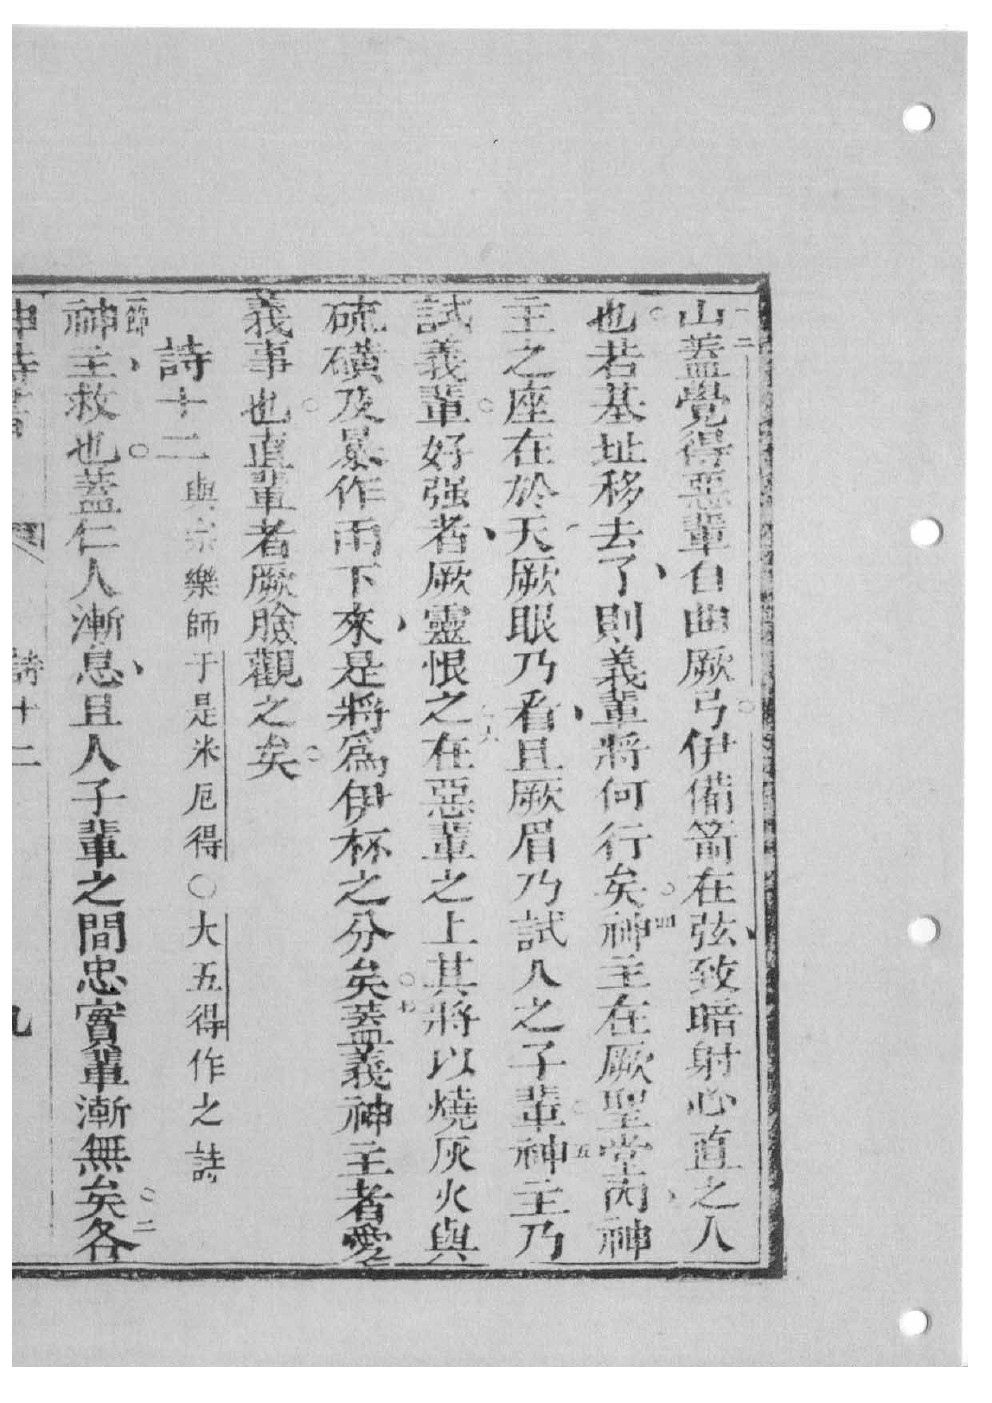 二山蓋覺得惡輩自曲厥弓伊備箭在弦致暗射心直之人
也若基址移去了則義輩將何行矣四神主在厥聖堂內神
主之座在於天厥眼乃看且厥眉乃試人之子輩五神主乃
試義輩好强者厥靈恨之六在惡輩之上其將以燒灰火與
硫磺及暴作雨下來是將爲伊杯之分矣七蓋義神主者愛
義事也直輩者厥臉觀之矣
詩十二 與宗樂師于是米厄得○大五得作之詩
一節神主救也蓋仁人漸息且人子輩之間忠實輩漸無矣二各
神詩書 詩十二 九